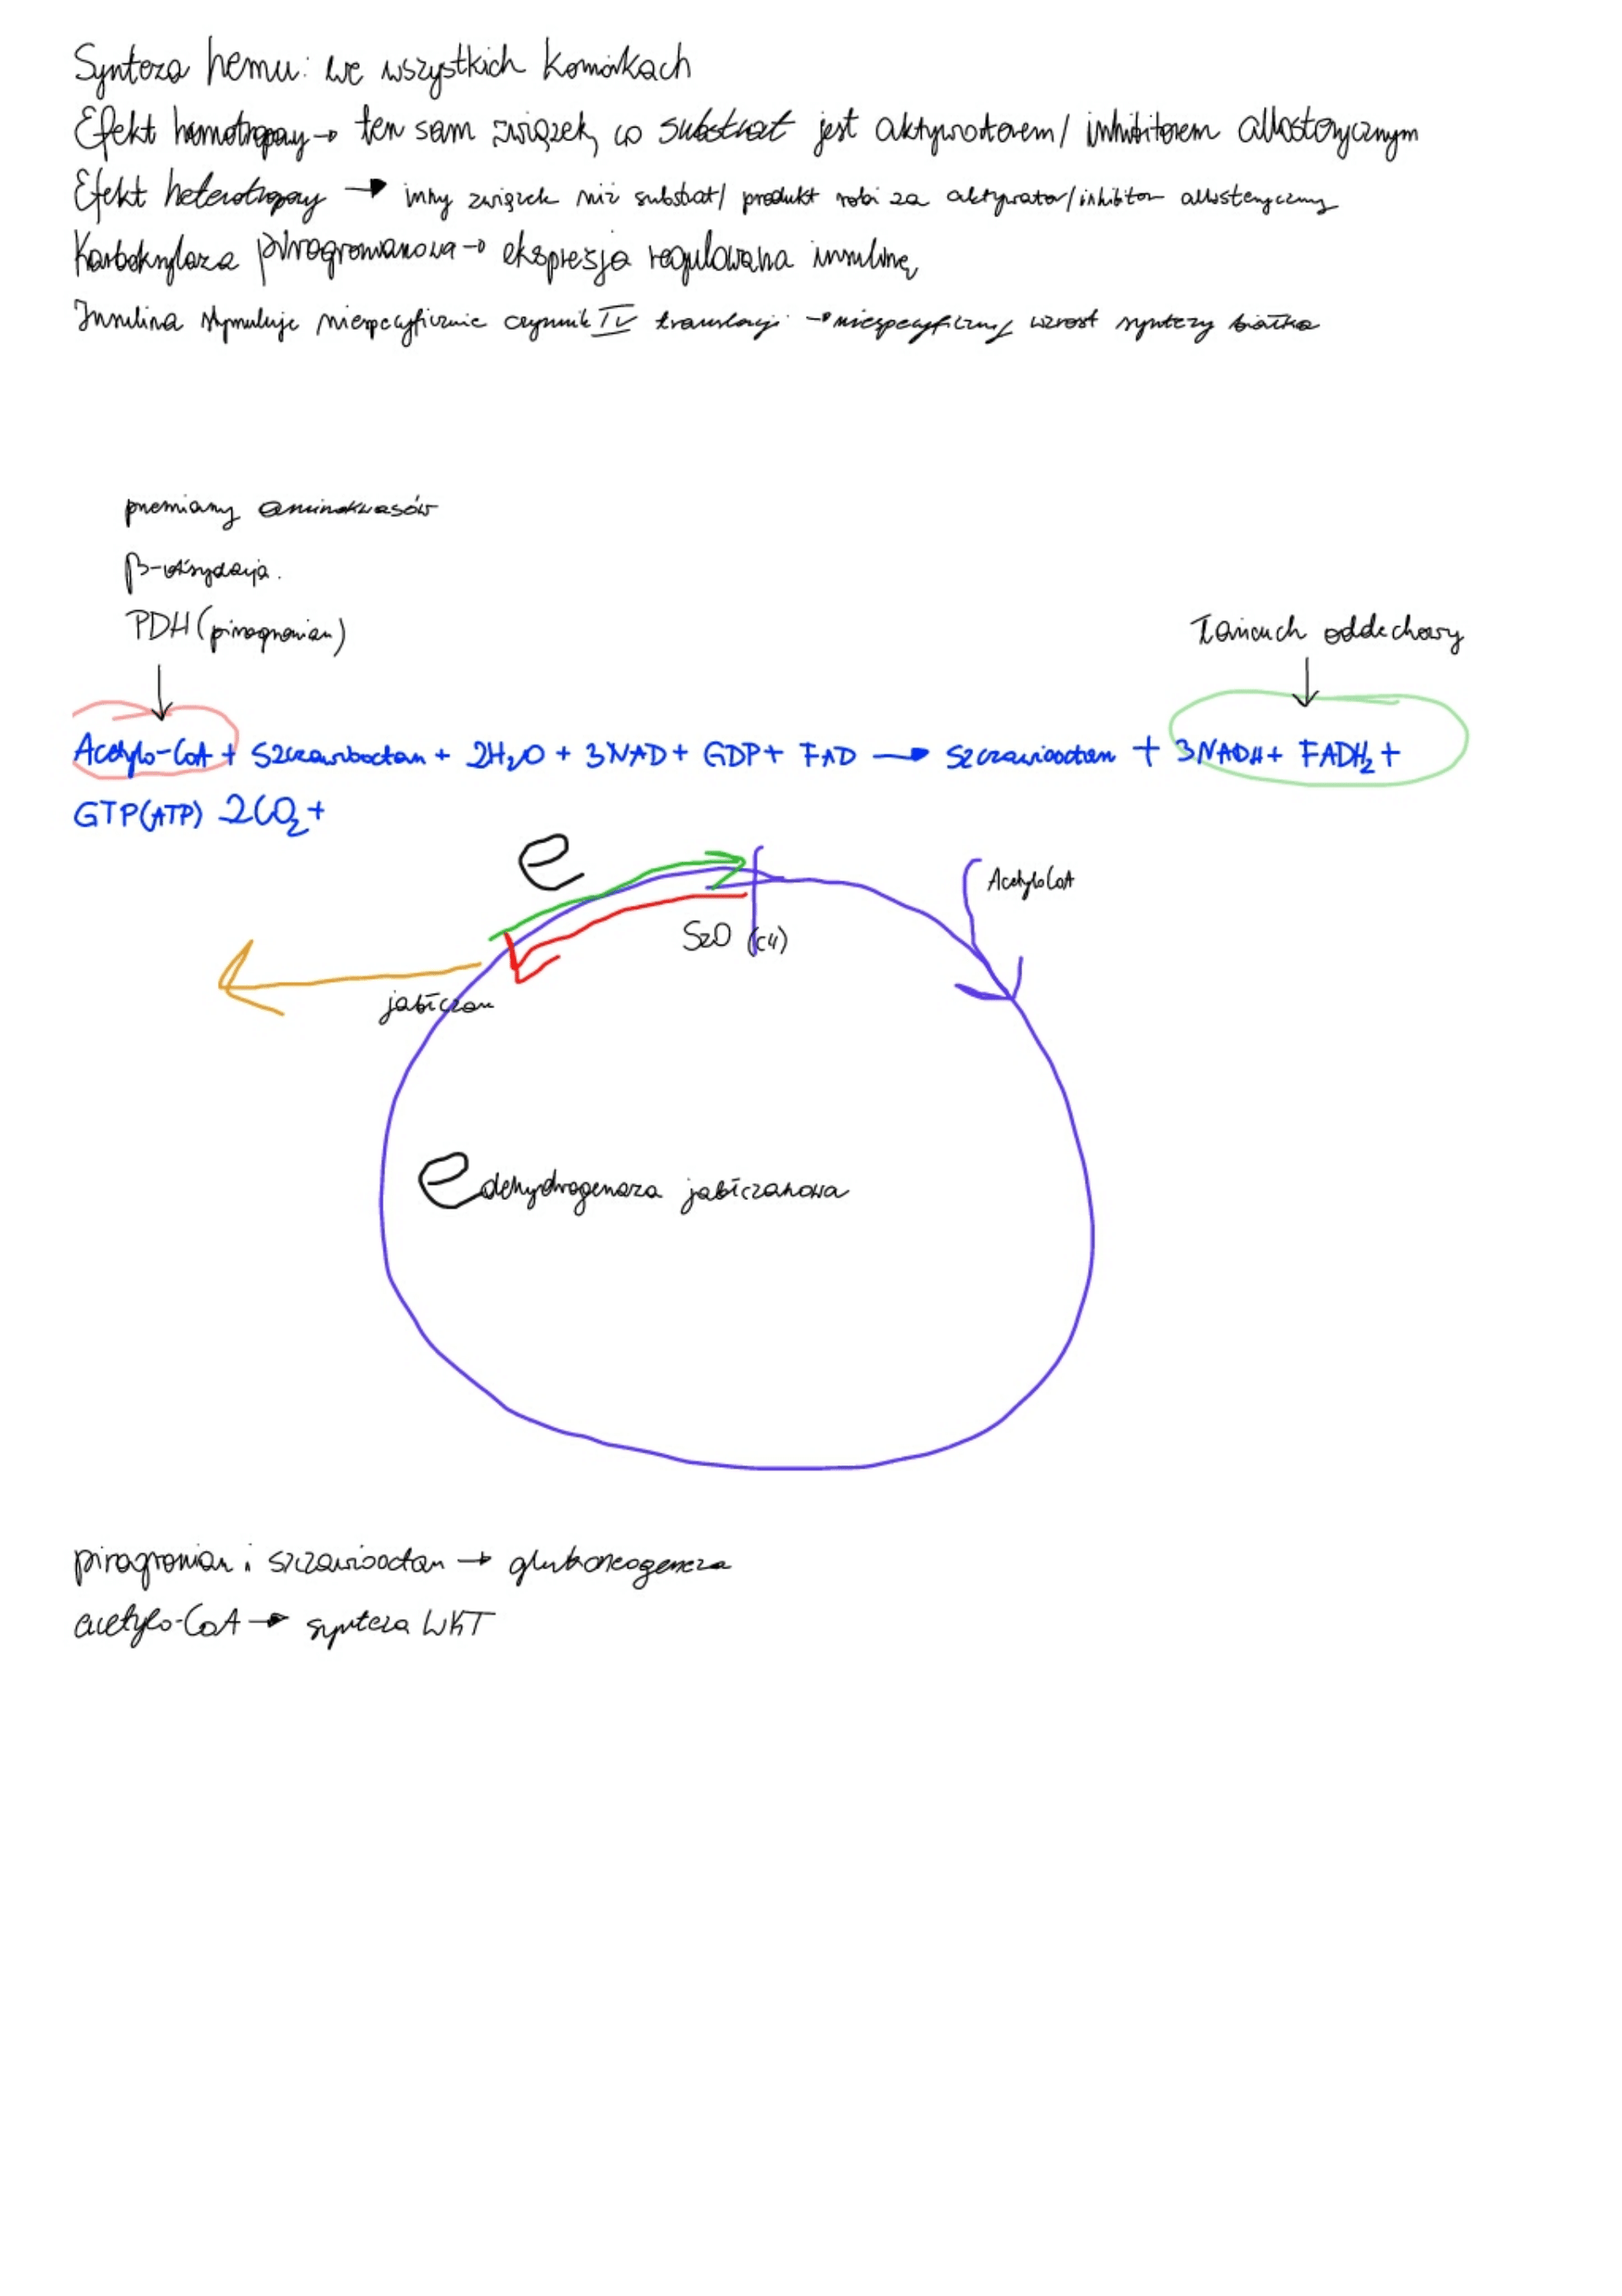 Synteza hemu: we wszystkich komórkach
Efekt homotropowy → ten sam związek, co substrat jest aktywatorem/ inhibitorem allosterycznym
Efekt heterotropowy → inny związek niż substrat/ produkt robi za aktywator/inhibitor allosteryczny
Karboksylaza pirogronianowa → ekspresja regulowana insuliną
Insulina stymuluje niespecyficznie czynnik IV translacji → niespecyficzny wzrost syntezy białka
przemiany aminokwasów
β-oksydacja.
PDH (pirogronian)
Łańcuch oddechowy
Acetylo-CoA + Szczawiooctan + 2H₂O + 3NAD + GDP + FAD → szczawiooctan + 3NADH + FADH₂ +
GTP(ATP) 2CO₂ +
e
AcetyloCoA
SzO (c4)
jabłczan
e dehydrogenaza jabłczanowa
pirogronian i szczawiooctan → glukoneogeneza
acetylo-CoA → synteza WKT